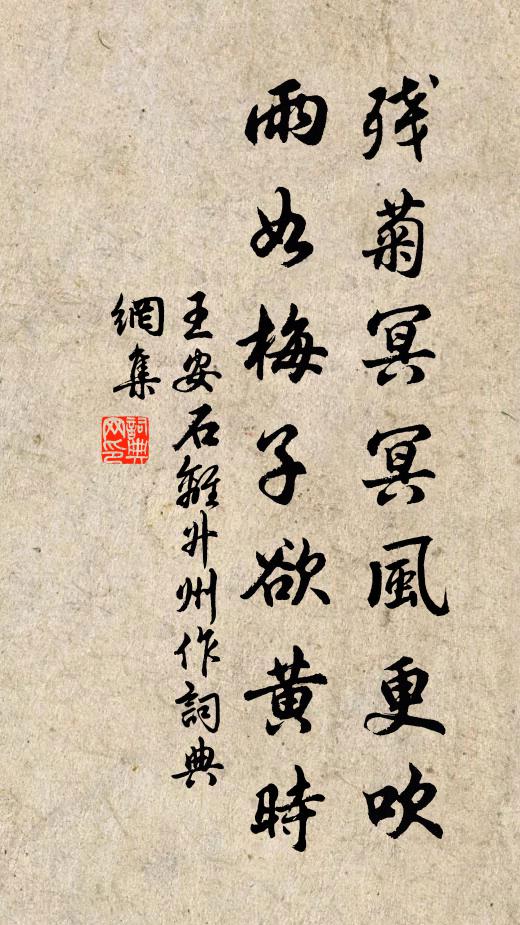 残菊冥冥風更吹
雨如梅子欲黄時
王安石離升州作詞典
網集
詞典
网印